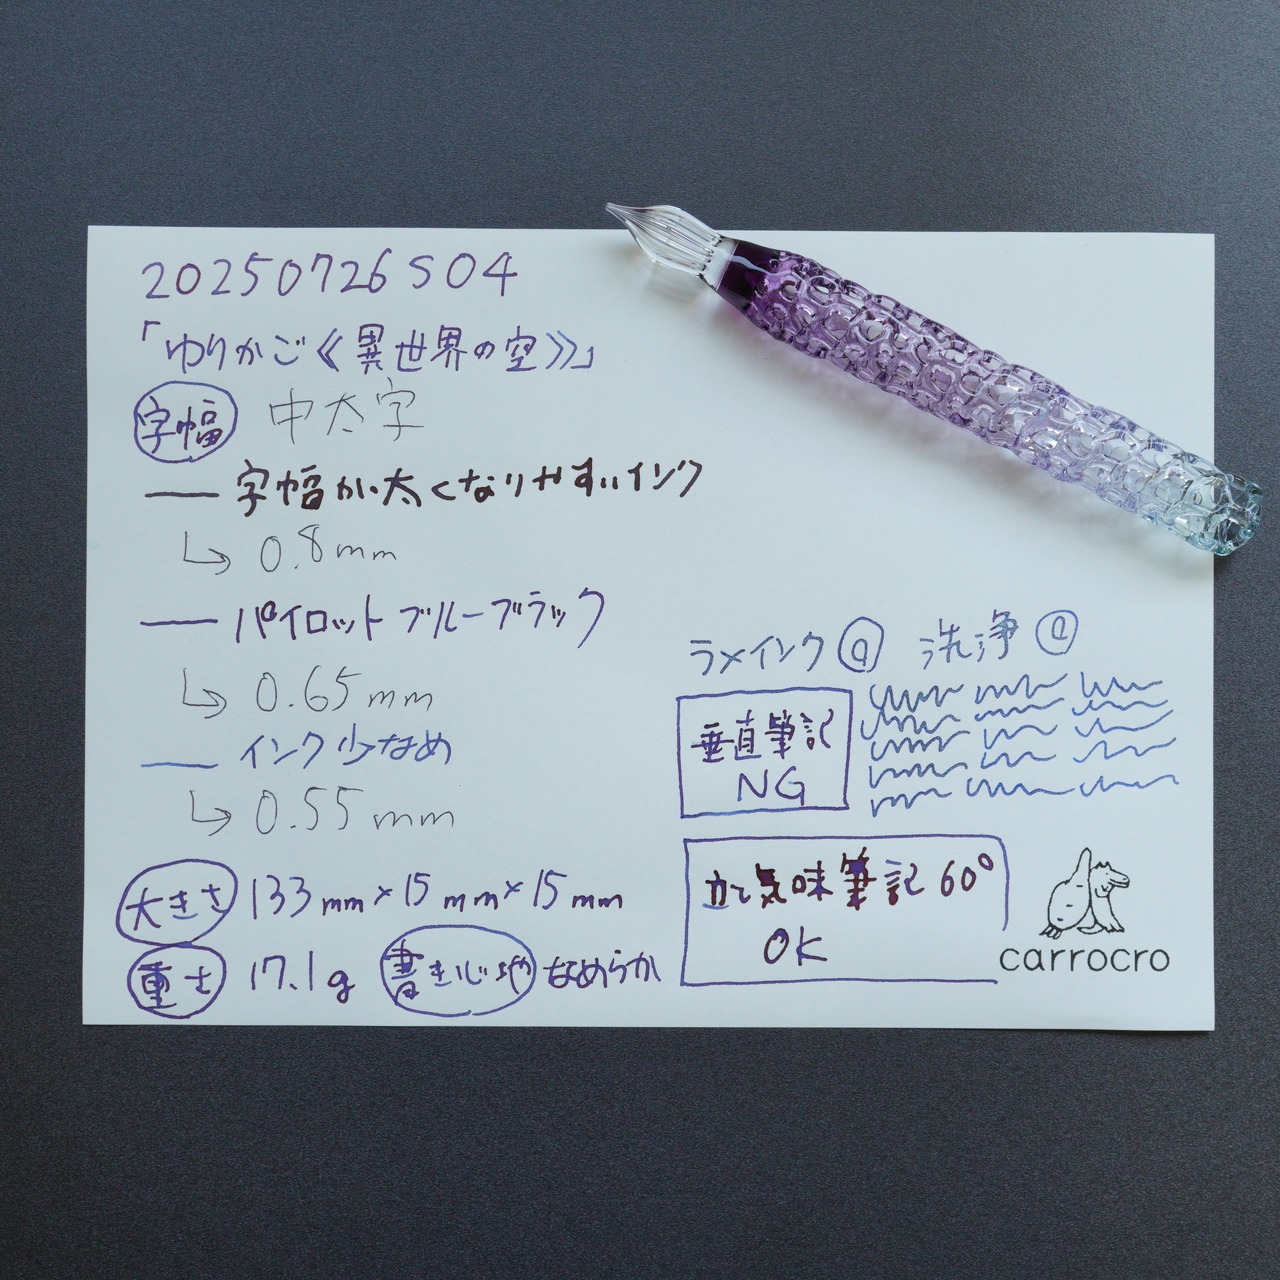 20250726S04
「ゆりかご《異世界の空》」
字幅 中太字
字幅が太くなりやすいインク
0.8mm
パイロットブルーブラック
0.65mm
インク少なめ
0.55mm
大きさ 133mm×15mm×15mm
重さ 17.1g 書き心地 なめらか
ラメインク@ 洗浄@
垂直筆記
NG
立て気味筆記60°
OK
carrocro